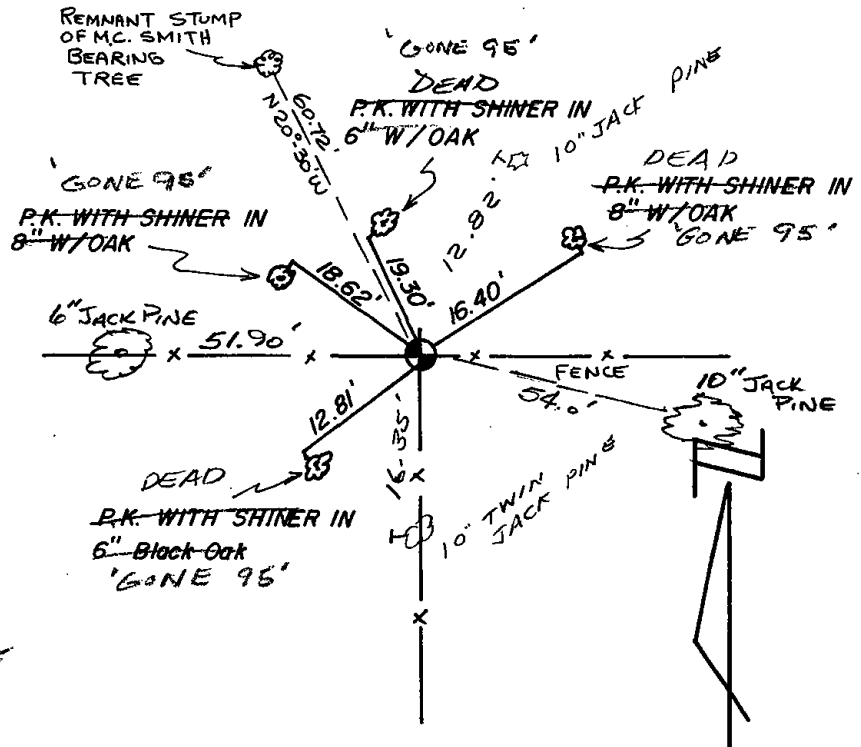 REMNANT STUMP
OF M.C. SMITH
BEARING
TREE
'GONE 95'
DEAD
P.K. WITH SHINER IN
6" W/OAK
10" JACK PINE
DEAD
P.K. WITH SHINER IN
8" W/OAK
'GONE 95'
'GONE 95'
P.K. WITH SHINER IN
8" W/OAK
60.72'
N 20°-30'W
12.92'
18.62'
19.30'
16.40'
6" JACK PINE
x 51.90' x x x
FENCE
54.0'
10" JACK
PINE
12.81'
16.35'
x
DEAD
P.K. WITH SHINER IN
6" Black Oak
'GONE 95'
10" TWIN
JACK PINE
x
N